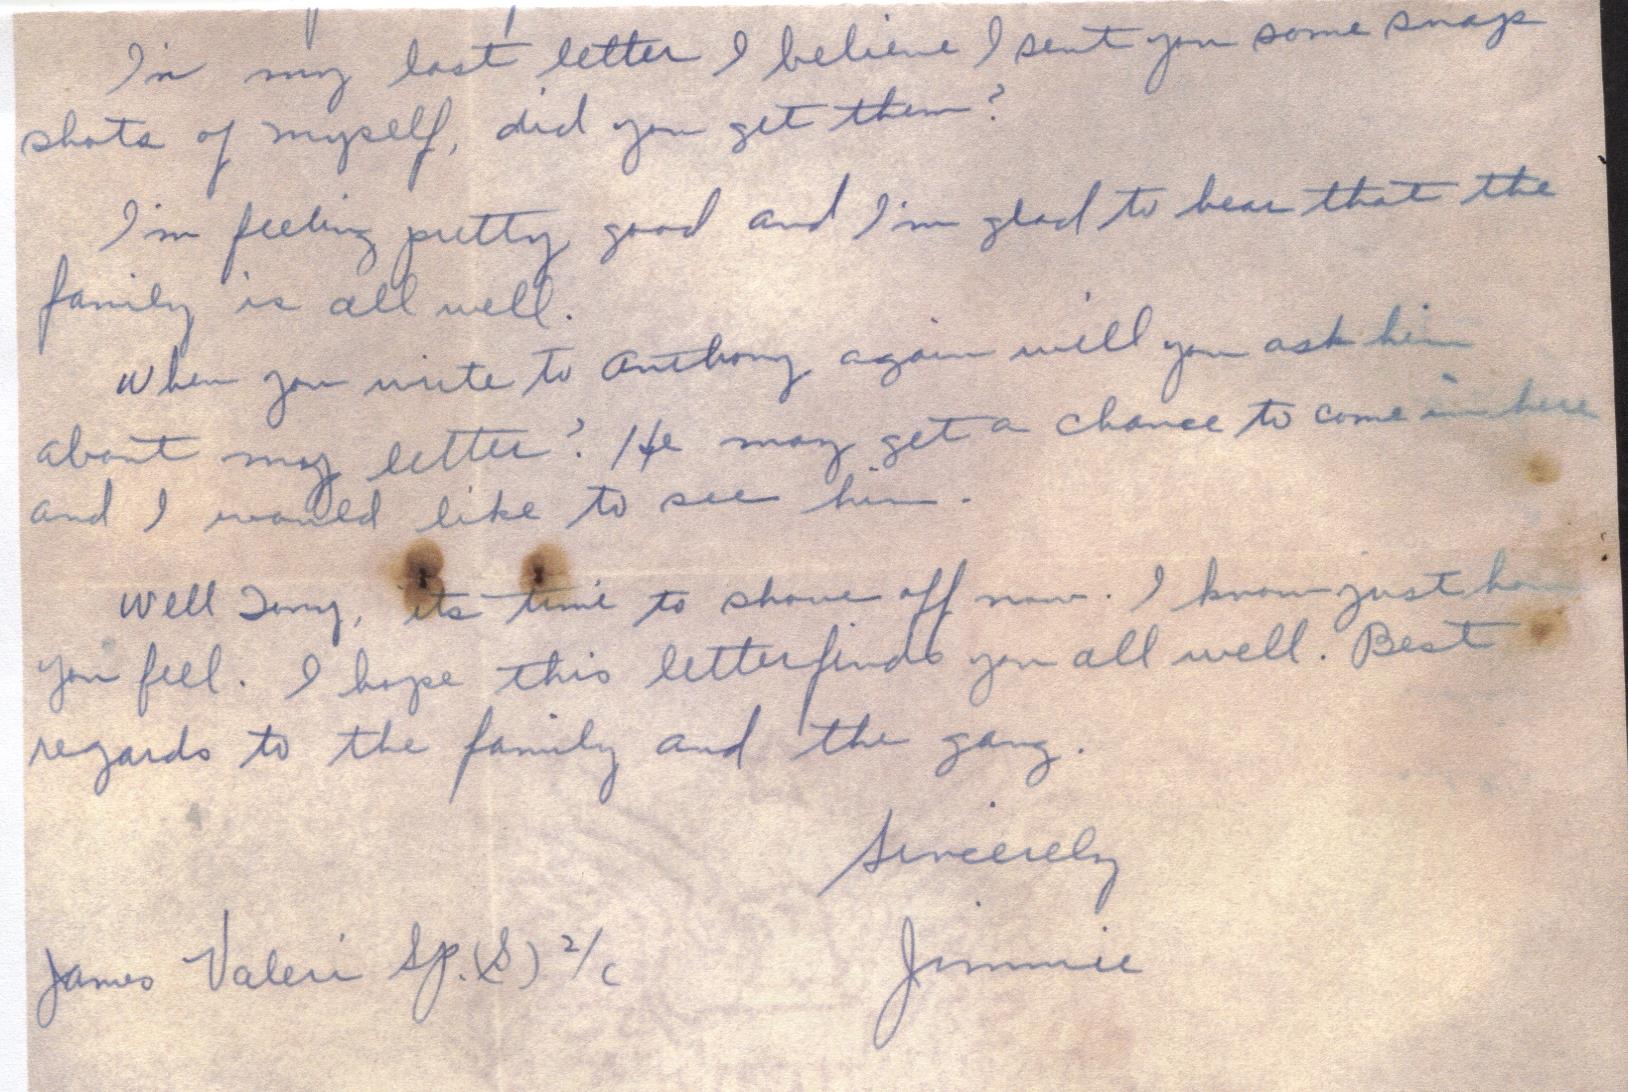 In my last letter I believe I sent you some snap
shots of myself, did you get them?
I'm feeling pretty good and I'm glad to hear that the
family is all well.
When you write to Anthony again will you ask him
about my letter? He may get a chance to come in here
and I would like to see him.
Well, its time to shove off now. I know just how
you feel. I hope this letter finds you all well. Best
regards to the family and the gang.
Sincerely
Jimmie
James Valeri Sp.(S) 2/c